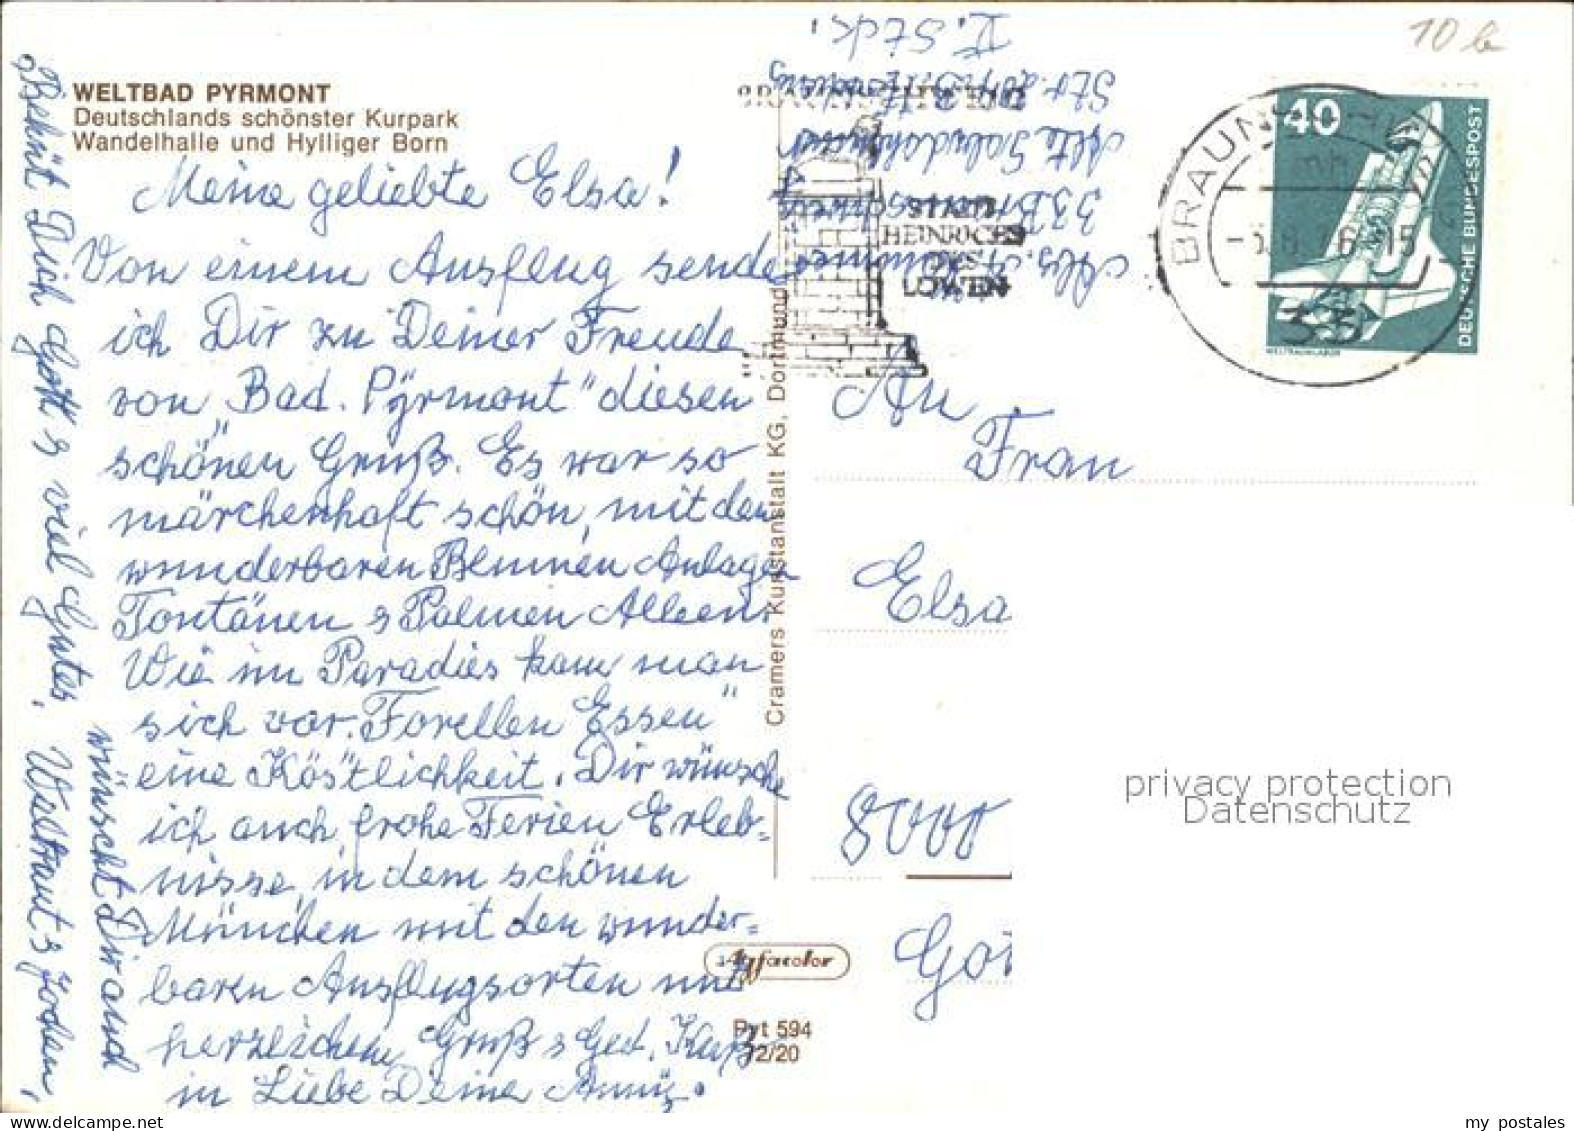 10 b
WELTBAD PYRMONT
Deutschlands schönster Kurpark
Wandelhalle und Hylliger Born
Meine geliebte Elsa!
Von einem Ausflug sende
ich Dir zu Deiner Freude
von „Bad. Pyrmont" diesen
schönen Gruß. Es war so
märchenhaft schön, mit den
wunderbaren Blumen Anlagen
Fontänen & Palmen Alleen.
Wie im Paradies kam man
sich vor. Forellen Essen"
eine Köstlichkeit. Dir wünsche
ich auch frohe Ferien Erleb=
nisse, in dem schönen
München mit den wunder=
baren Ausflugsorten und
herzlichen Gruß & Ged. Kuß
in Liebe Deine
Behüt Dich Gott & viel Gutes,
wünscht Dir auch
Waltraut & Jochen,
Cramers Kunstanstalt KG, Dortmund
Agfacolor
Pyt 594
12/20
STADT
HEINRICHS
DES
LÖWEN
BRAUNSCHWEIG
33
40
DEUTSCHE BUNDESPOST
WELTRAUMLABOR
Abs. A.
33 Braunschweig
Alte
II. Stck.
An
Frau
Elsa
8000
privacy protection
Datenschutz
my postales